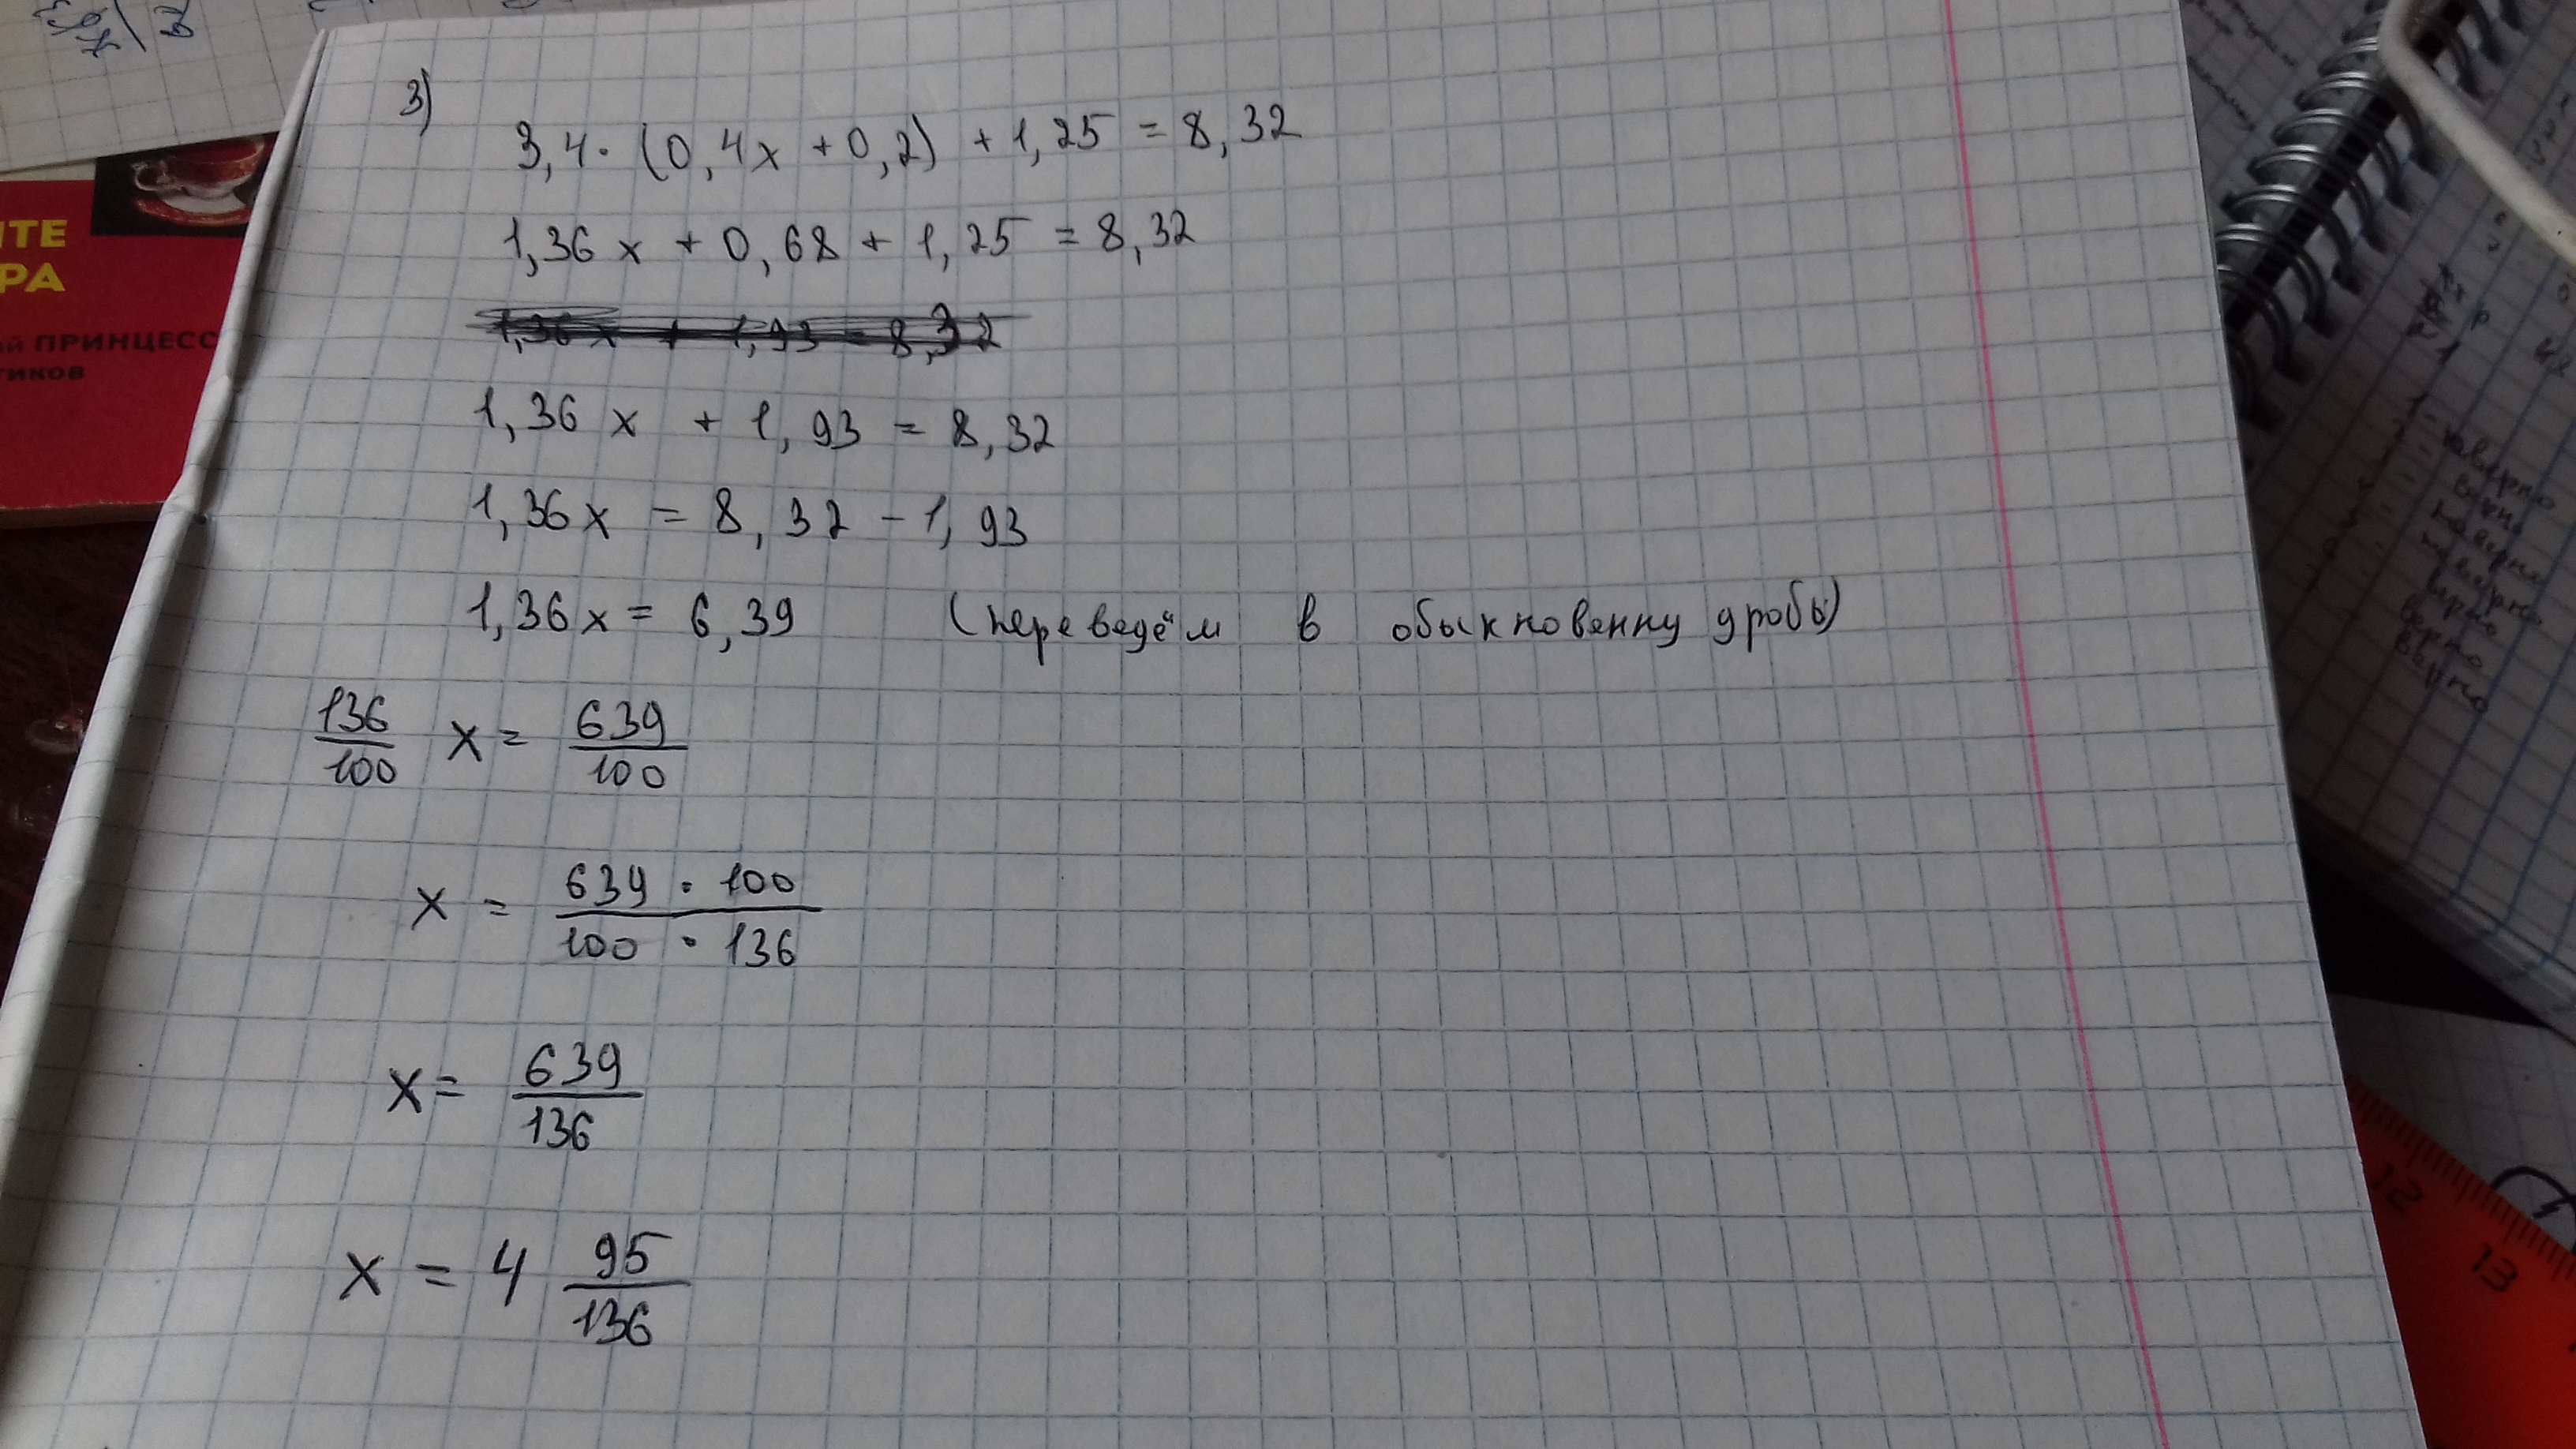 3)
3,4· (0,4x + 0,2) + 1,25 = 8,32
1,36 x + 0,68 + 1,25 = 8,32
1,36 x + 1,93 = 8,32
1,36 x + 1,93 = 8,32
1,36x = 8,32 - 1,93
1,36x = 6,39 (переведём в обыкновенну дробь)
136/100 x = 639/100
x = 639 · 100 / 100 · 136
x = 639/136
x = 4 95/136
ИТЕ
РА
ой ПРИНЦЕСС
тиков
неверно
верно
неверно
неверно
верно
верно
верно
12
13